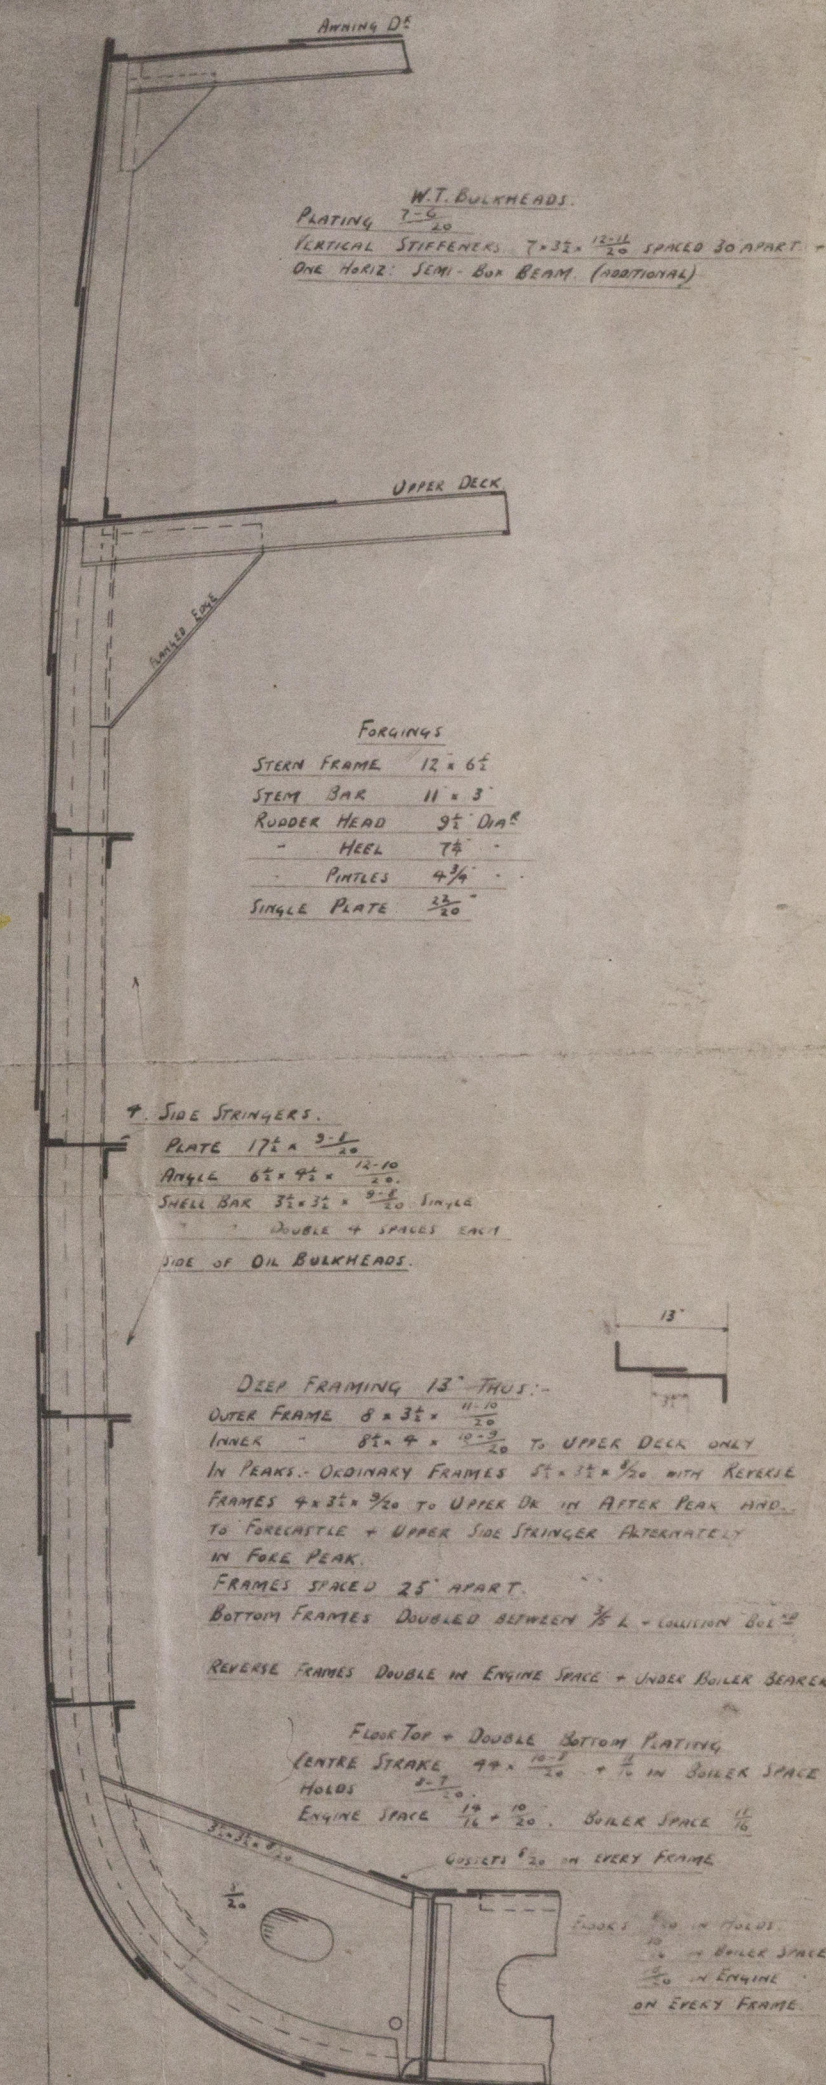 AWNING DK
W.T. BULKHEADS.
PLATING 7-6/20
VERTICAL STIFFENERS 7 × 3½ × 12-11/20 SPACED 30 APART.
ONE HORIZ: SEMI-BOX BEAM. (ADDITIONAL)
UPPER DECK
FLANGED EDGE
FORGINGS
STERN FRAME 12" × 6½
STEM BAR 11 × 3"
RUDDER HEAD 9½" DIAR
" HEEL 7¼" "
" PINTLES 4¾" "
SINGLE PLATE 22/20"
4. SIDE STRINGERS.
PLATE 17½ × 9-8/20
ANGLE 6½ × 4½ × 12-10/20.
SHELL BAR 3½ × 3½ × 9-8/20 SINGLE
" " DOUBLE 4 SPACES EACH
SIDE OF OIL BULKHEADS.
13"
3½"
DEEP FRAMING 13" THUS:-
OUTER FRAME 8 × 3½ × 11-10/20
INNER " 8½ × 4 × 10-9/20 TO UPPER DECK ONLY
IN PEAKS:- ORDINARY FRAMES 5½ × 3½ × 8/20 WITH REVERSE
FRAMES 4 × 3½ × 9/20 TO UPPER DK IN AFTER PEAK AND
TO FORECASTLE + UPPER SIDE STRINGER ALTERNATELY
IN FORE PEAK.
FRAMES SPACED 25" APART.
BOTTOM FRAMES DOUBLED BETWEEN 3/5 L + COLLISION
REVERSE FRAMES DOUBLE IN ENGINE SPACE + UNDER BOILER BEARER
FLOOR TOP + DOUBLE BOTTOM PLATING
CENTRE STRAKE 44 × 10-8/20 + 11/16 IN BOILER SPACE
HOLDS 8-7/20.
ENGINE SPACE 14/16 + 10/20. BOILER SPACE 11/16
3½ × 3½ × 8/20
GUSSETS 8/20 ON EVERY FRAME
8/20
FLOORS IN HOLDS.
IN BOILER SPACE
IN ENGINE "
ON EVERY FRAME.